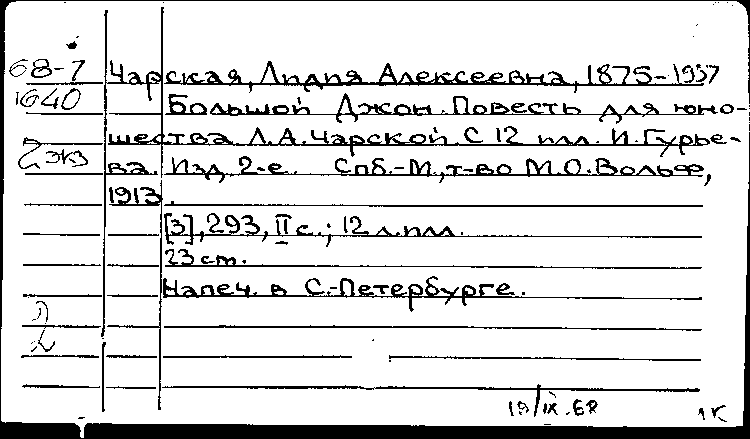 68-7
1640
2 экз
2
Чарская, Лидия Алексеевна, 1875-1937
Большой Джон. Повесть для юно-
шества Л.А. Чарской. С 12 илл. И. Гурье-
ва. Изд. 2-е. Спб.-М., т-во М.О. Вольф,
1913.
[3], 293, II с.; 12 л. илл.
23 см.
Напеч. в С.-Петербурге.
19/IX-68
1К